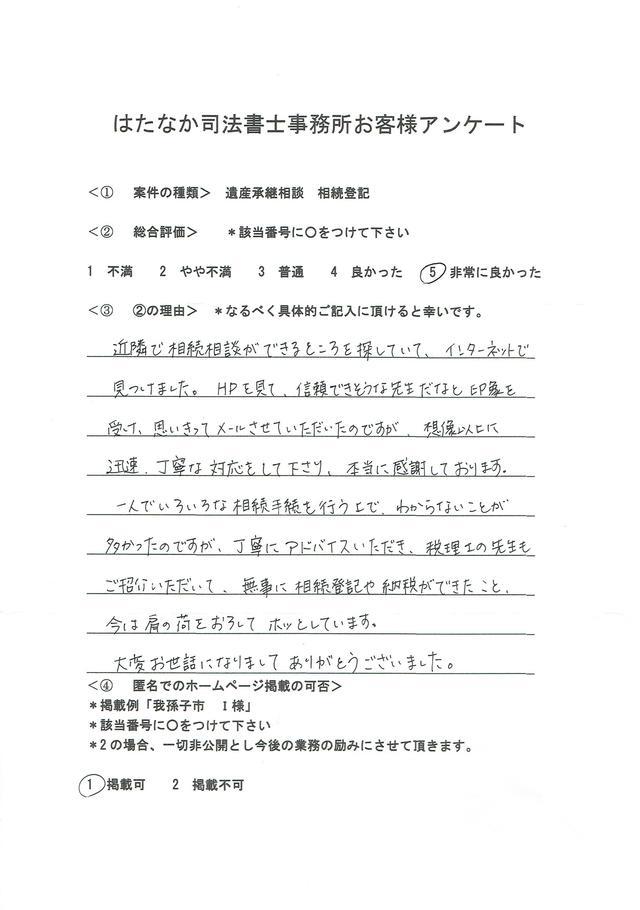 はたなか司法書士事務所お客様アンケート
＜①　案件の種類＞　遺産承継相談　相続登記
＜②　総合評価＞　　＊該当番号に〇をつけて下さい
1　不満　　2　やや不満　　3　普通　　4　良かった　　⑤　非常に良かった
＜③　②の理由＞　＊なるべく具体的ご記入に頂けると幸いです。
近隣で相続相談ができるところを探していて、インターネットで
見つけました。HPを見て、信頼できそうな先生だなと印象を
受け、思いきってメールさせていただいたのですが、想像以上に
迅速、丁寧な対応をして下さり、本当に感謝しております。
一人でいろいろな相続手続を行う上で、わからないことが
多かったのですが、丁寧にアドバイスいただき、税理士の先生も
ご紹介いただいて、無事に相続登記や納税ができたこと、
今は肩の荷をおろしてホッとしています。
大変お世話になりましてありがとうございました。
＜④　匿名でのホームページ掲載の可否＞
＊掲載例「我孫子市　I様」
＊該当番号に〇をつけて下さい
＊2の場合、一切非公開とし今後の業務の励みにさせて頂きます。
①　掲載可　　2　掲載不可